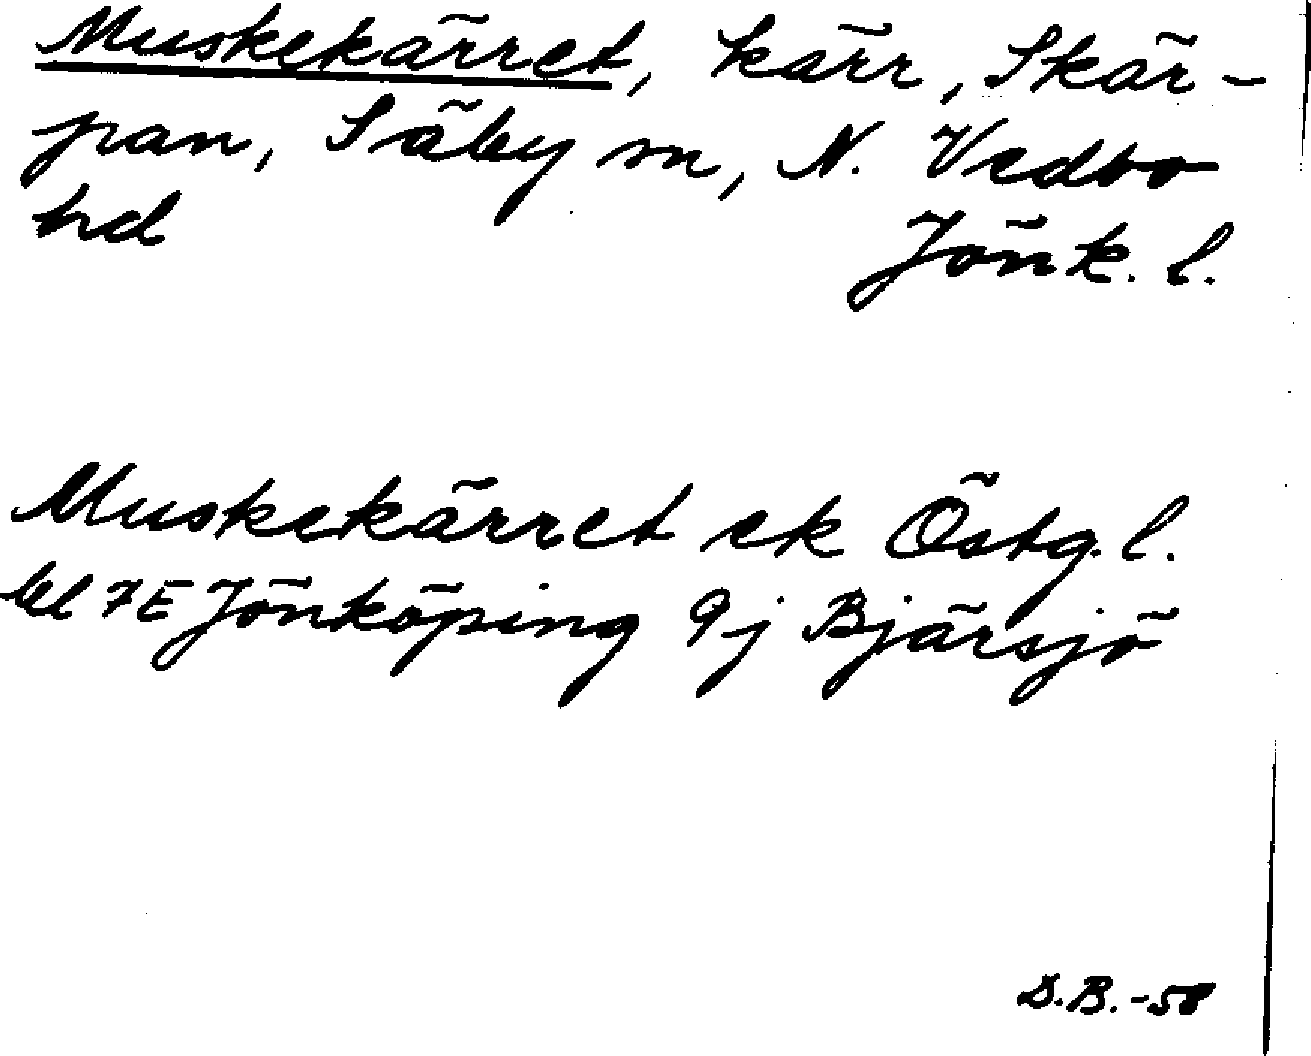 Muskekärret, kärr, Skär-
pan, Säby sn, N. Vedbo
hd
Jönk. l.
Muskekärret ek Östg. l.
bl 7E Jönköping 9j Bjärsjö
D.B.-58